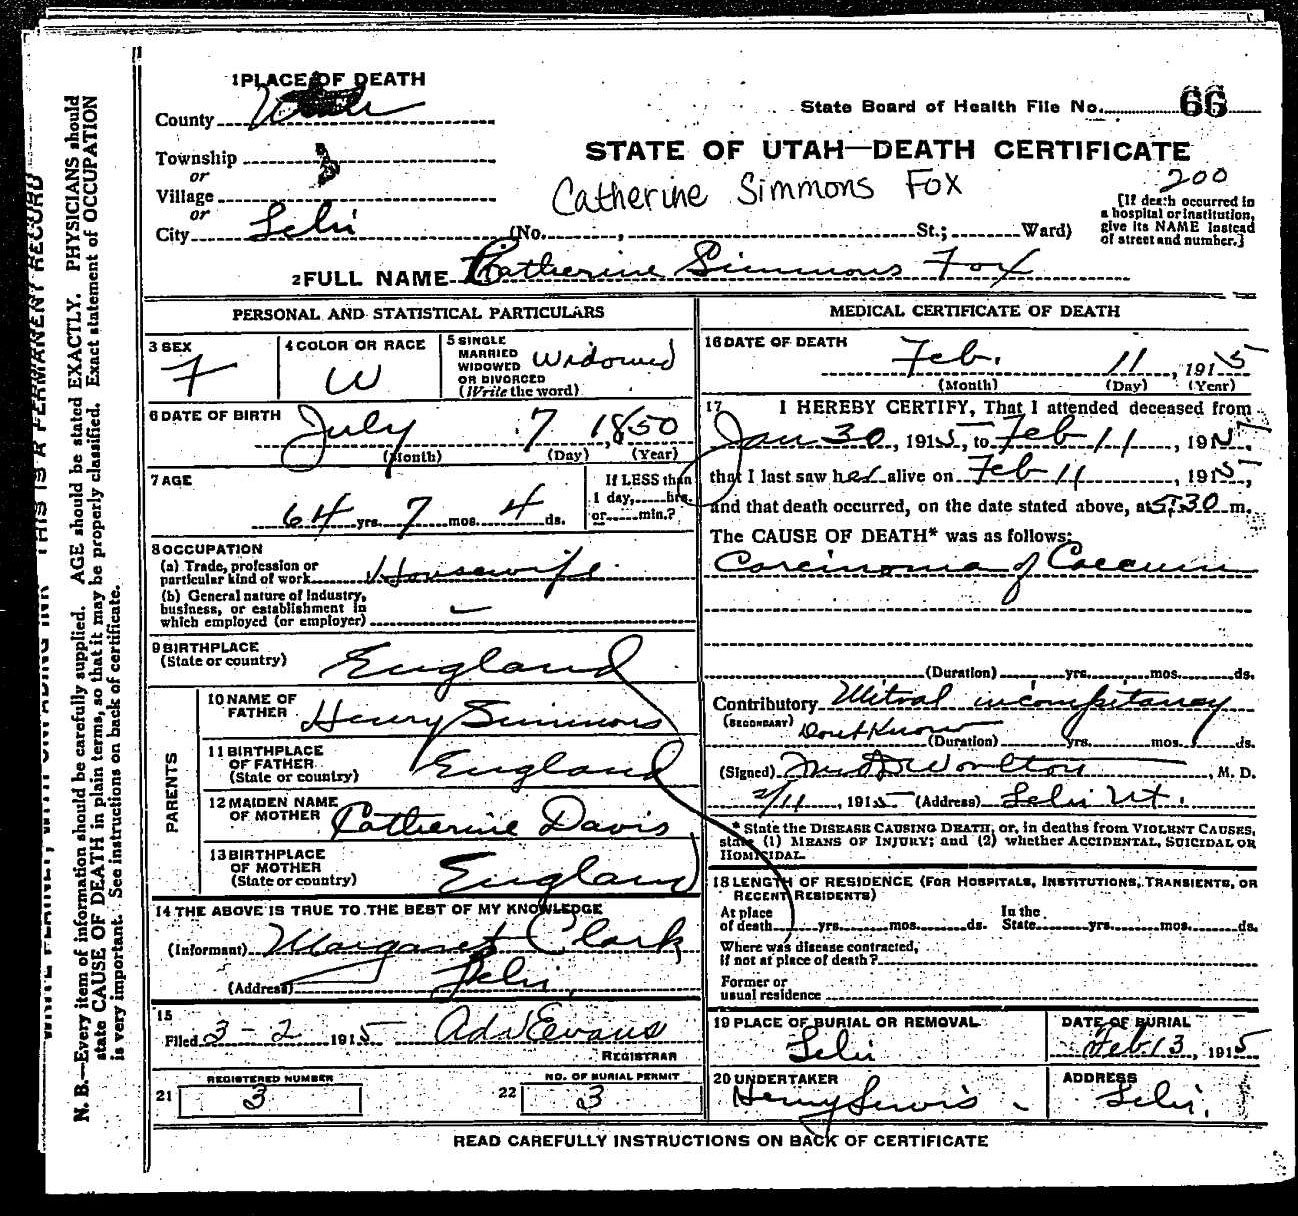 1 PLACE OF DEATH
County Utah
State Board of Health File No. 66
STATE OF UTAH—DEATH CERTIFICATE
Township
or
Village
or
City Lehi (No. , St.; Ward)
Catherine Simmons Fox
200
[If death occurred in
a hospital or institution,
give its NAME instead
of street and number.]
2 FULL NAME Catherine Simmons Fox
PERSONAL AND STATISTICAL PARTICULARS
3 SEX
F
4 COLOR OR RACE
W
5 SINGLE
MARRIED
WIDOWED
OR DIVORCED
(Write the word)
Widowed
6 DATE OF BIRTH
July 7 1850
(Month) (Day) (Year)
7 AGE
64 yrs. 7 mos. 4 ds.
If LESS than
1 day, hrs.
or min.?
8 OCCUPATION
(a) Trade, profession or
particular kind of work Housewife
(b) General nature of Industry,
business, or establishment in
which employed (or employer)
9 BIRTHPLACE
(State or country) England
PARENTS
10 NAME OF
FATHER Henry Simmons
11 BIRTHPLACE
OF FATHER
(State or country) England
12 MAIDEN NAME
OF MOTHER Catherine Davis
13 BIRTHPLACE
OF MOTHER
(State or country) England
14 THE ABOVE IS TRUE TO THE BEST OF MY KNOWLEDGE
(Informant) Margaret Clark
(Address) Lehi.
15
Filed 3-2 1915 Ad Evans
REGISTRAR
21 REGISTERED NUMBER
3
22 NO. OF BURIAL PERMIT
3
MEDICAL CERTIFICATE OF DEATH
16 DATE OF DEATH
Feb. 11, 1915
(Month) (Day) (Year)
17 I HEREBY CERTIFY, That I attended deceased from
Jan 30, 1915, to Feb 11, 191
that I last saw her alive on Feb 11, 1915,
and that death occurred, on the date stated above, at 5:30 m.
The CAUSE OF DEATH* was as follows:
Carcinoma of Caecum
(Duration) yrs. mos. ds.
Contributory Mitral incompitancy
(SECONDARY) Dont Know
(Duration) yrs. mos. ds.
(Signed) Worlton, M. D.
2/11, 1915 (Address) Lehi Ut.
* State the DISEASE CAUSING DEATH, or, in deaths from VIOLENT CAUSES,
state (1) MEANS OF INJURY; and (2) whether ACCIDENTAL, SUICIDAL OR
HOMICIDAL.
18 LENGTH OF RESIDENCE (FOR HOSPITALS, INSTITUTIONS, TRANSIENTS, OR
RECENT RESIDENTS)
At place
of death yrs. mos. ds.
In the
State yrs. mos. ds.
Where was disease contracted,
if not at place of death?
Former or
usual residence
19 PLACE OF BURIAL OR REMOVAL
Lehi
DATE OF BURIAL
Feb. 13, 1915
20 UNDERTAKER
Henry Lewis
ADDRESS
Lehi.
READ CAREFULLY INSTRUCTIONS ON BACK OF CERTIFICATE
WRITE PLAINLY, WITH UNFADING INK—THIS IS A PERMANENT RECORD
N. B.—Every item of information should be carefully supplied. AGE should be stated EXACTLY. PHYSICIANS should
state CAUSE OF DEATH in plain terms, so that it may be properly classified. Exact statement of OCCUPATION
is very important. See instructions on back of certificate.